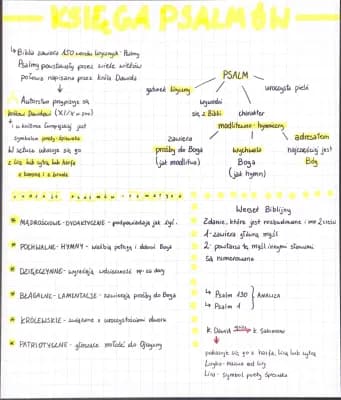 KSIĘGA PSALMÓW
↳ Biblia zawiera 150 wersetów lirycznych - Psalmy
Psalmy powstawały przez wiele wieków
połowa napisana przez króla Dawida
Autorstwo przypisuje się
królowi Dawidowi (XI/X w pne)
↳ w kulturze europejskiej jest
symbolem poety-śpiewaka
W sztuce ukazuje się go
z lirą lub cytrą lub harfą
z koroną i z brodą
PSALM
gatunek liryczny
uroczysta pieśń
wywodzi
się z Biblii
charakter
modlitewno-hymniczny
zawiera
prośby do Boga
(jak modlitwa)
wychwala
Boga
(jak hymn)
adresatem
najczęściej jest
Bóg
podział psalmów - tematyka
★ MĄDROŚCIOWE-DYDAKTYCZNE - podpowiadają jak żyć.
★ POCHWALNE-HYMNY - wielbią potęgę i dobroć Boga
★ DZIĘKCZYNNE - wyrażają wdzięczność np. za dary
★ BŁAGALNE-LAMENTACJE - zawierają prośby do Boga
★ KRÓLEWSKIE - związane z uroczystościami dworu
★ PATRIOTYCZNE - głoszące miłość do Ojczyzny
Werset Biblijny
Zdanie, które jest rozbudowane i ma 2 części
1 - zawiera główną myśl
2 - powtarza tę myśl innymi słowami
są numerowane
↳ Psalm 130
↳ Psalm 1
} ANALIZA
K. DAWID → K. SALOMON
↓
pokazuje się go z harfą, lirą lub cytrą
Liryka - nazwa od liry
Lira - symbol poety śpiewaka